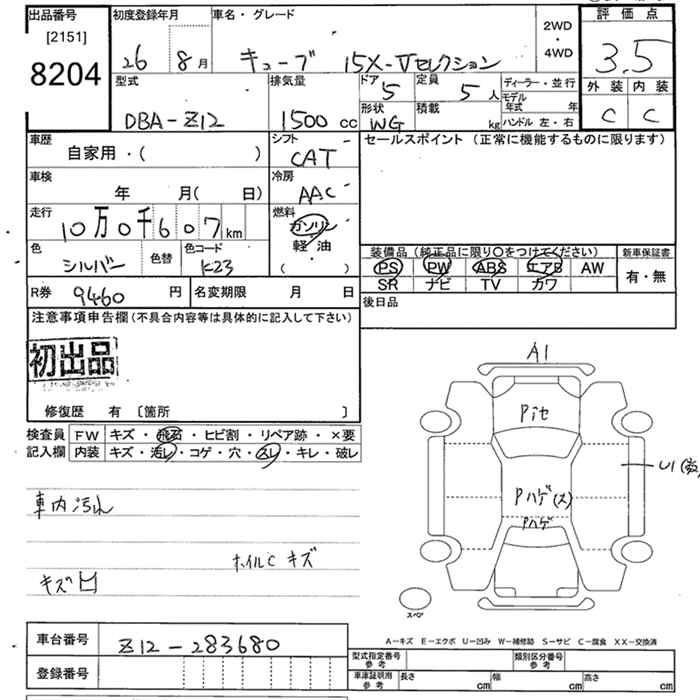 出品番号
[2151]
8204
初度登録年月
26 8月
車名・グレード
キューブ 15X-Vセレクション
2WD
・
4WD
評価点
3.5
外装 内装
C C
型式
DBA-Z12
排気量
1500 cc
ドア
5
定員
5人
形状
WG
積載
kg
ディーラー・並行
モデル
年式 年
ハンドル 左・右
車歴
自家用・( )
シフト
CAT
セールスポイント (正常に機能するものに限ります)
車検
年 月( 日)
冷房
AAC
走行
10万0千607km
燃料
ガソリン
軽油
・
( )
色
シルバー
色替
色コード
K23
装備品 (純正品に限り〇をつけてください)
PS PW ABS エアB AW
SR ナビ TV カワ
新車保証書
有・無
R券 9460円
名変期限 月 日
後日品
注意事項申告欄(不具合内容等は具体的に記入して下さい)
初出品
修復歴 有 [箇所 ]
検査員
記入欄
FW キズ・飛石・ヒビ割・リペア跡・×要
内装 キズ・汚レ・コゲ・穴・スレ・キレ・破レ
A1
Pitセ
Pハゲ(ス)
Pハゲ
U1
スペア
車内汚れ
ホイルC キズ
キズ凹
車台番号
Z12-283680
登録番号
A-キズ E-エクボ U-凹み W-補修跡 S-サビ C-腐食 XX-交換済
型式指定番号
参考
類別区分番号
参考
車庫証明用
参考
長さ cm 幅 cm 高さ cm